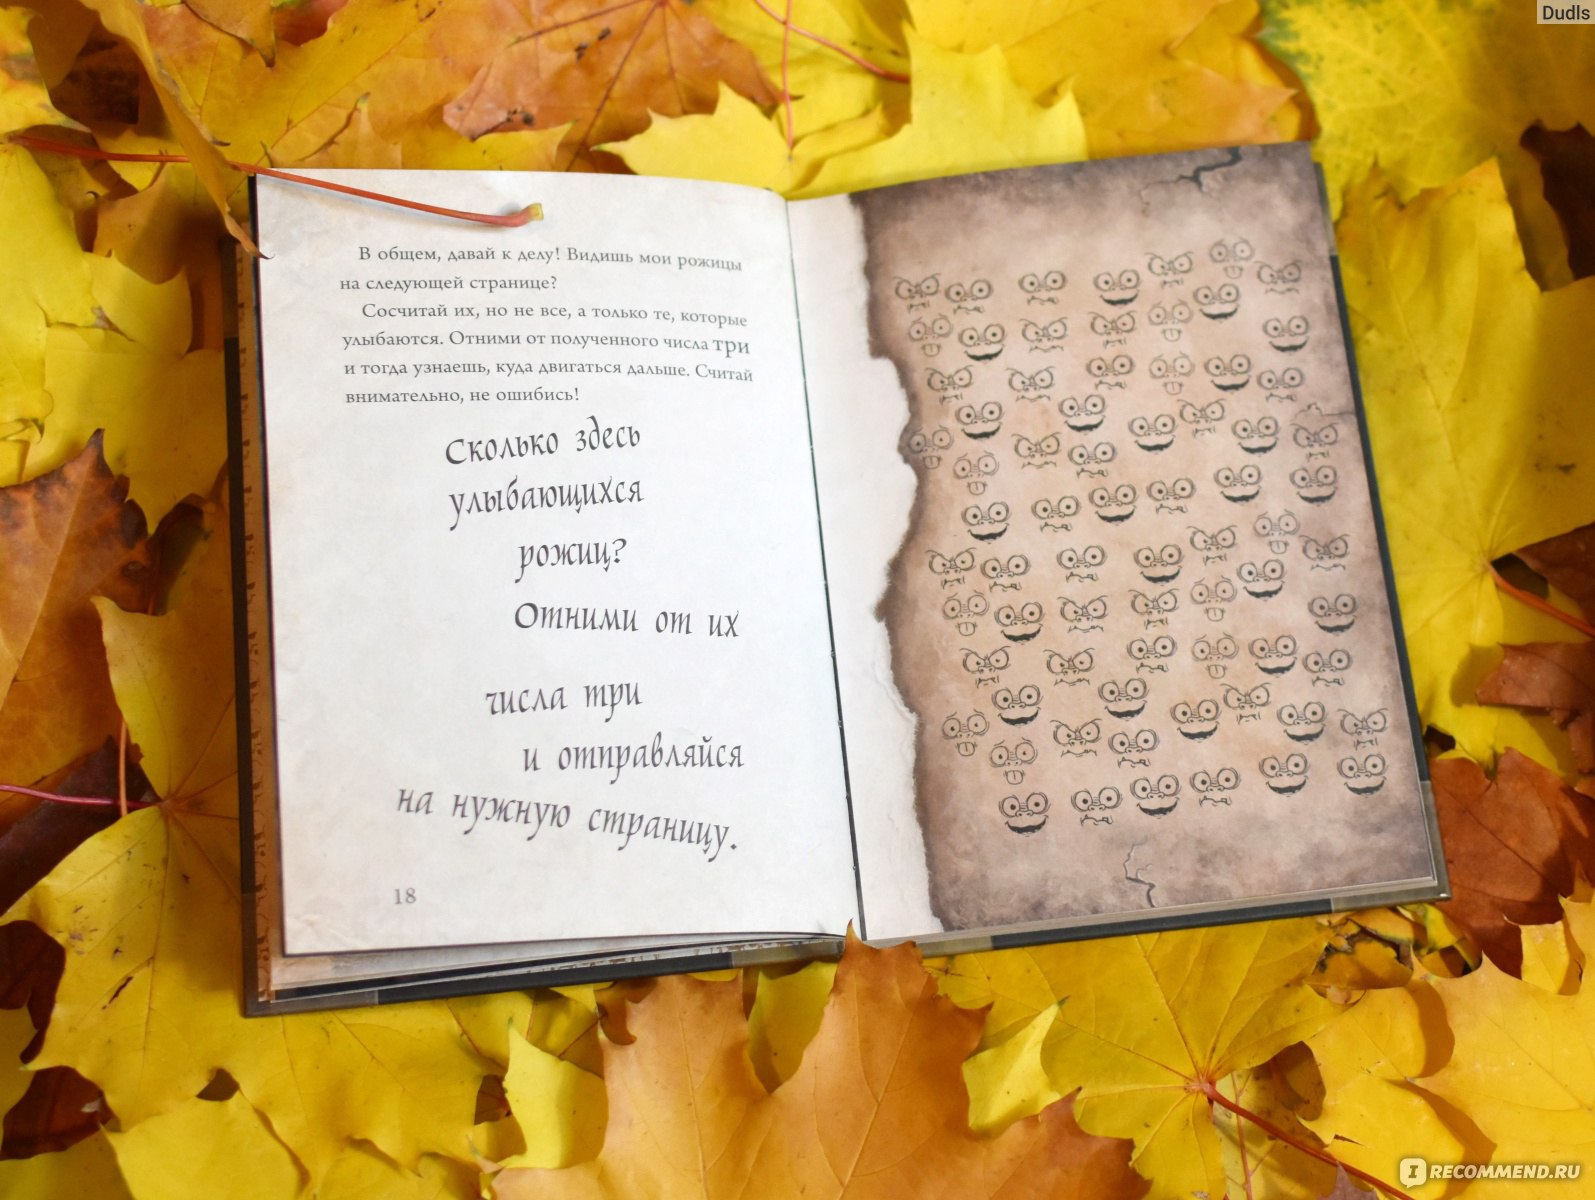 Dudls
В общем, давай к делу! Видишь мои рожицы
на следующей странице?
Сосчитай их, но не все, а только те, которые
улыбаются. Отними от полученного числа три
и тогда узнаешь, куда двигаться дальше. Считай
внимательно, не ошибись!
Сколько здесь
улыбающихся
рожиц?
Отними от их
числа три
и отправляйся
на нужную страницу.
18
I RECOMMEND.RU